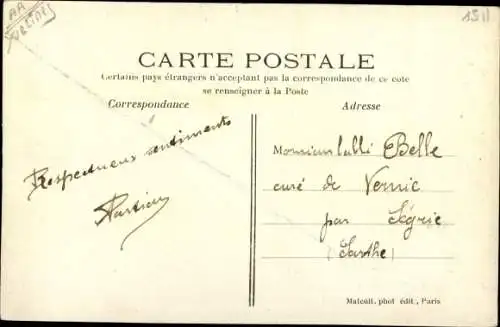 AA
1511
CARTE POSTALE
Certains pays étrangers n'acceptant pas la correspondance de ce coté
se renseigner à la Poste
Correspondance
Adresse
Respectueux sentiments
Monsieur l'abbé Belle
curé de Vernie
par Ségrie
(Sarthe)
Malcuit, phot édit, Paris